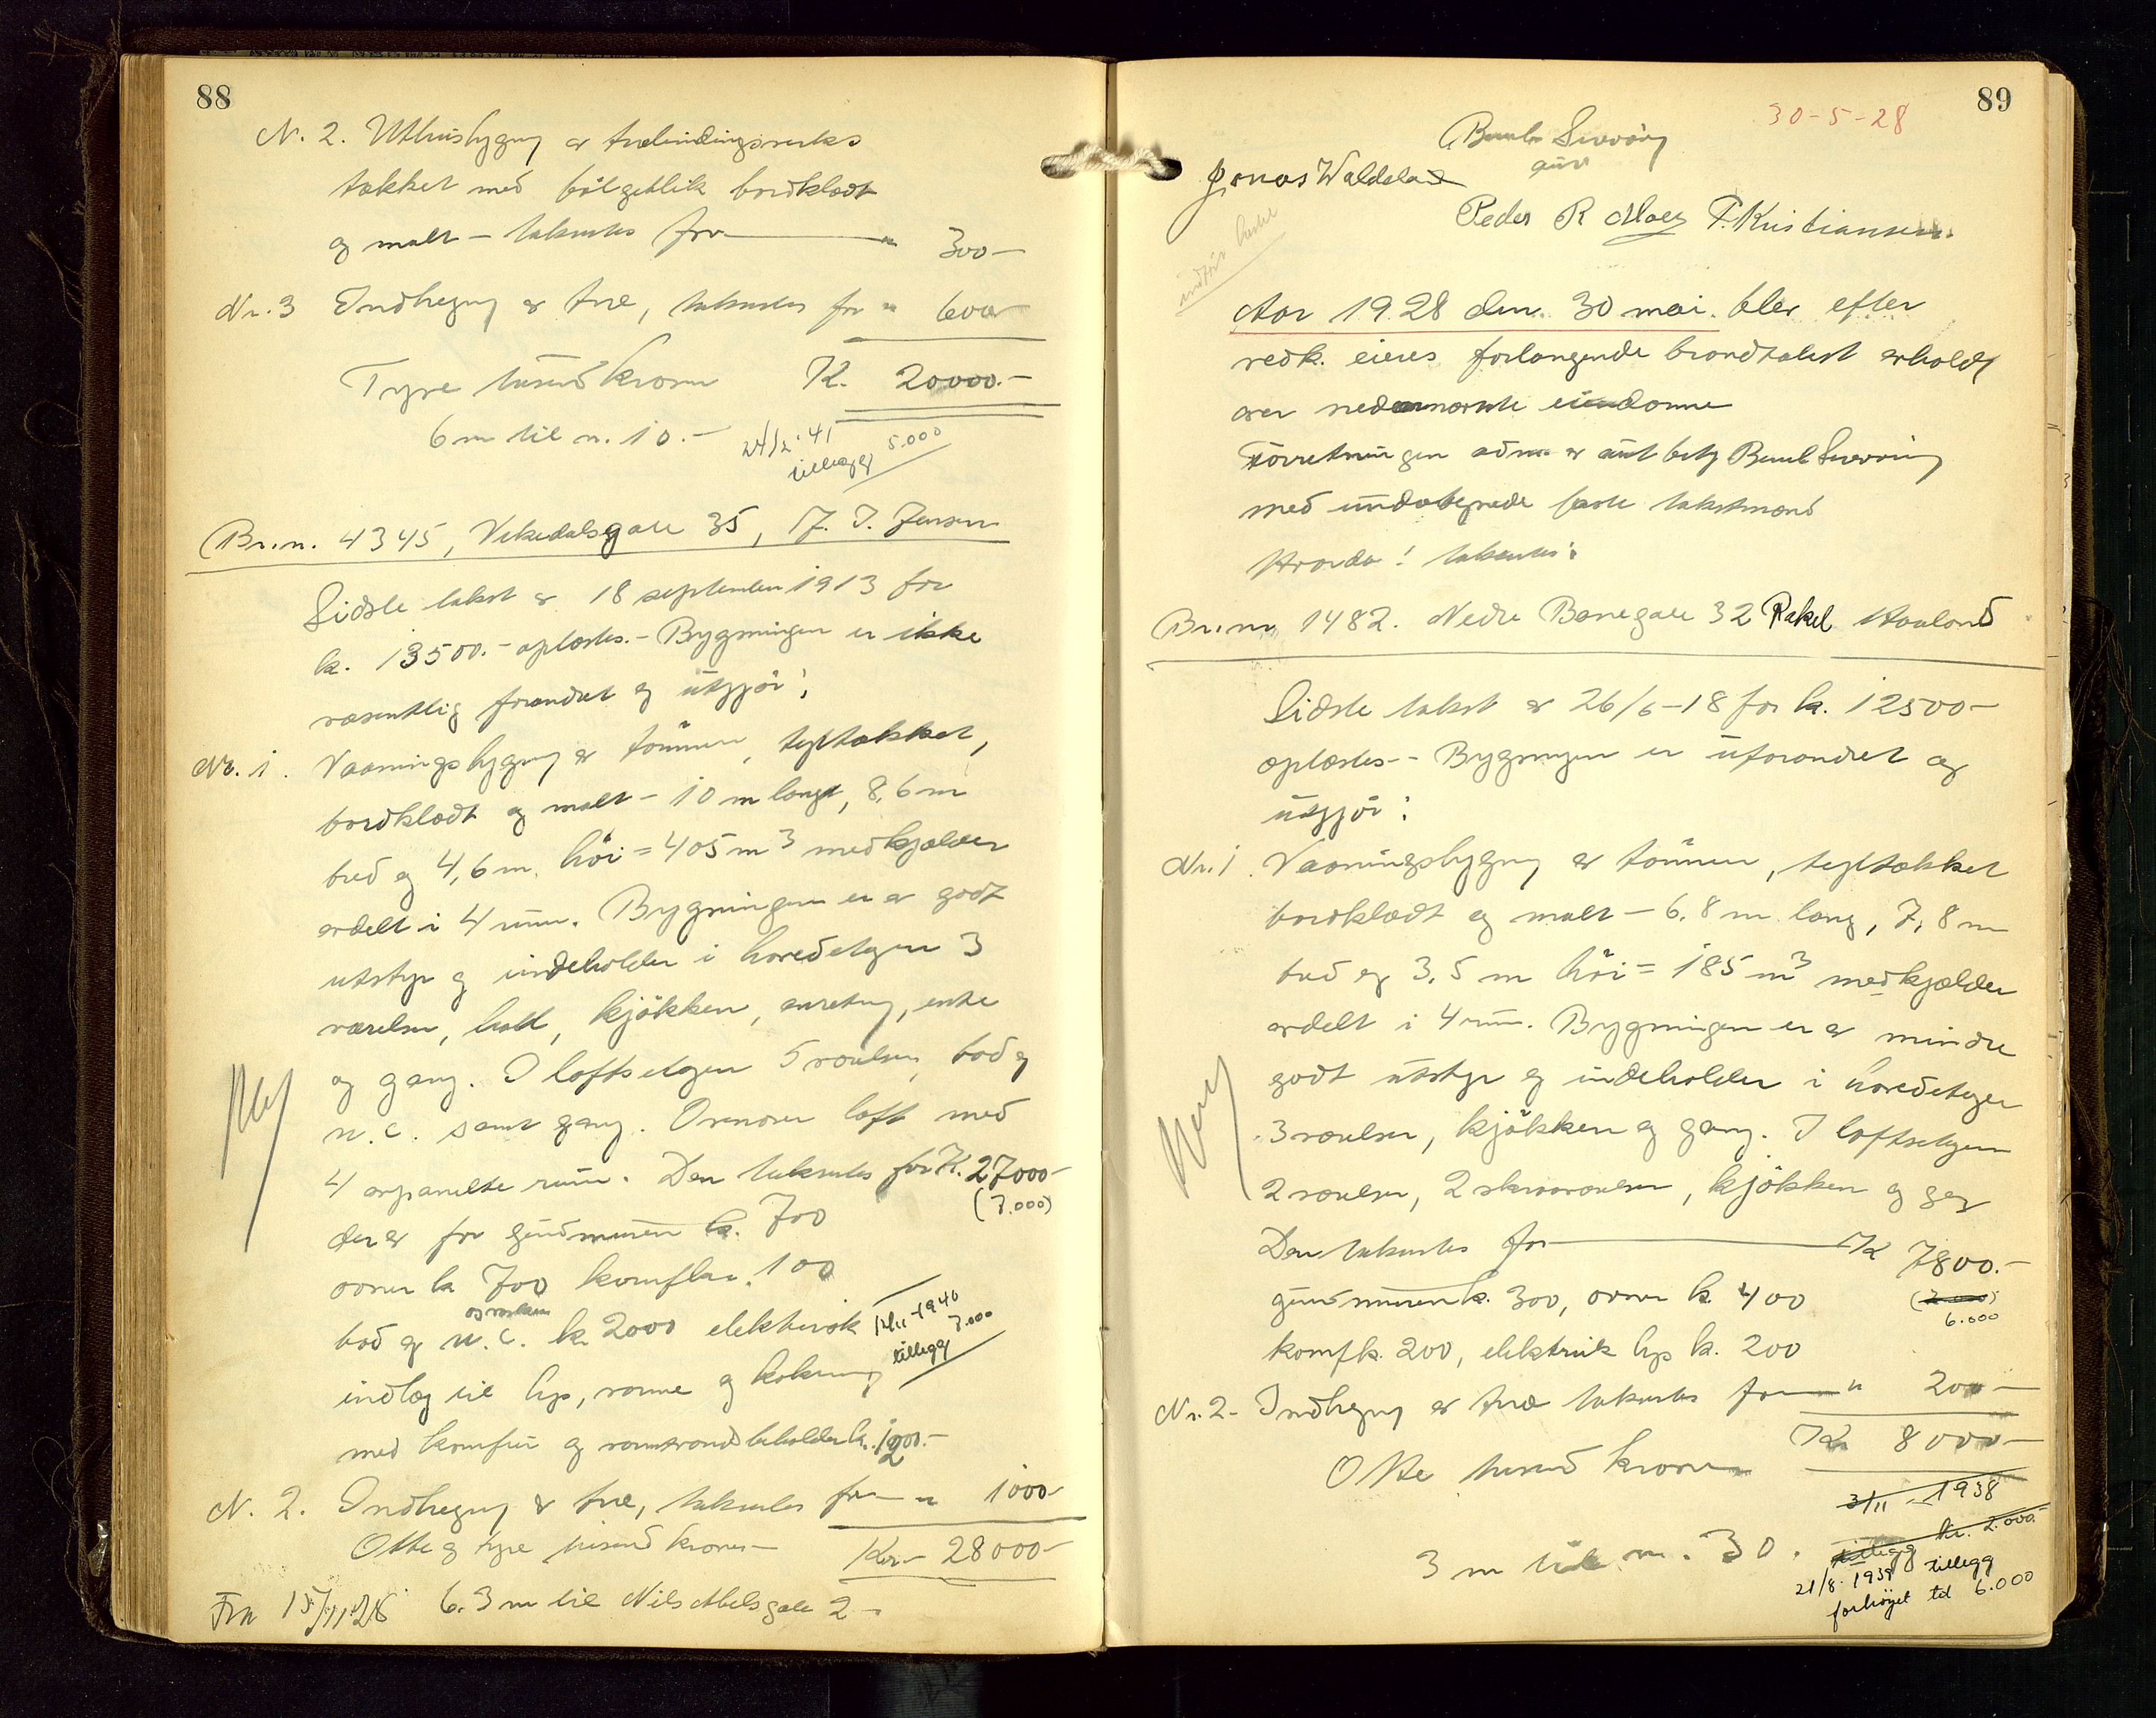 88
N. 2. Uthusbygng av trebindingsverks
tækket med bølgeblik bordklædt
og malt – takseres for " 300 –
Nr. 3 Indhegng av træ, takseres for " 600
Tyve tusind kroner K. 20000.–
6 m til n. 10.–
24/2 '41 tillegg 5.000
Br.n. 4345, Vikedalsgate 35, J. Jensen
Sidste takst av 18 september 1913 for
k. 13500.– oplæstes. – Bygningen er ikke
væsentlig forandret og utgjør:
Nr. 1. Vaaningsbygng av tømmer, tegltækket,
bordklædt og malt – 10 m lang, 8,6 m
bred og 4,6 m. høi = 405 m3 med kjælder
avdelt i 4 rum. Bygningen er av godt
utstyr og indeholder i hovedetagen 3
værelser, hall, kjøkken, anretng, entre
og gang. I loftsetagen 5 værelser, bad og
w.c. samt gang. Ovenover loft med
4 avpanelte rum. Den takseres for K. 27000–
(7.000)
derav for grundmuren k. 700
ovner k 700 komflur. 100
og vasken
bad og w.c. k. 2000 elektrisk
12/11-1940
tillegg 7.000
indlæg til lys, varme og kokning
med komfur og varmtvandsbeholder k. 1200.–
N. 2. Indhegng av træ, takseres for " 1000
Otte og tyve tusind kroner – Kr. – 28000–
Fra 15/11.28 6.3 m til Nils Abelsgate 2 –
89
30-5-28
Bernh Severin
Jonas Waldeland
Peder R Moe P. Kristiansen
indført
Aar 1928 den 30 mai. blev efter
vedk. eieres forlangende brandtakst avholdt
over nedennævnte eiendomme
Forretningen adm. av aut. best. Bernh Severin
med undertegnede faste takstmænd
Hvorda! takseres:
Br.nr 1482. Nedre Banegate 32 Rakel Haaland
Sidste takst av 26/6–18 for k. 12500–
oplæstes – Bygningen er uforandret og
utgjør:
Nr. 1. Vaaningsbygng av tømmer, tegltækket
bordklædt og malt – 6.8 m lang, 7,8 m
bred og 3,5 m høi = 185 m3 med kjælder
avdelt i 4 rum. Bygningen er av mindre
godt utstyr og indeholder i hovedetagen
3 værelser, kjøkken og gang. I loftsetagen
2 værelser, 2 skraaværelser, kjøkken og gang
Den takseres for K 7800.–
grundmuren k. 300, ovner k. 400
(2.000)
6.000
komf k. 200, elektrisk lys k. 200
Nr. 2 – Indhegng av træ takseres for " 200 –
Otte tusind kroner K. 8000–
3/11 1938
tillegg kr. 2.000.
3 m til n. 30.
21/8. 1939 tillegg
forhøyet til 6.000